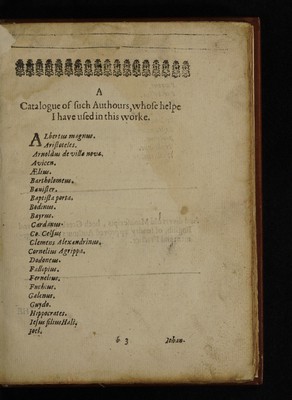 A
Catalogue of ſuch Authours, whoſe helpe
I have uſed in this worke.
ALbertus magnus.
Ariſtateles.
Arnoldus de villa nova.
Avicen.
Ælius.
Bartholomeus.
Baniſter.
Baptiſta porta.
Bodinus.
Bayrus.
Cardanus.
Co. Celſus
Clemens Alexandrinus,
Cornelius Agrippa.
Dodoneus.
Fallopius.
Fernelius,
Fuchſius.
Galenus.
Guydo.
Hippocrates.
Ieſus filius Hali,
Joel.
b. 3 Johan.